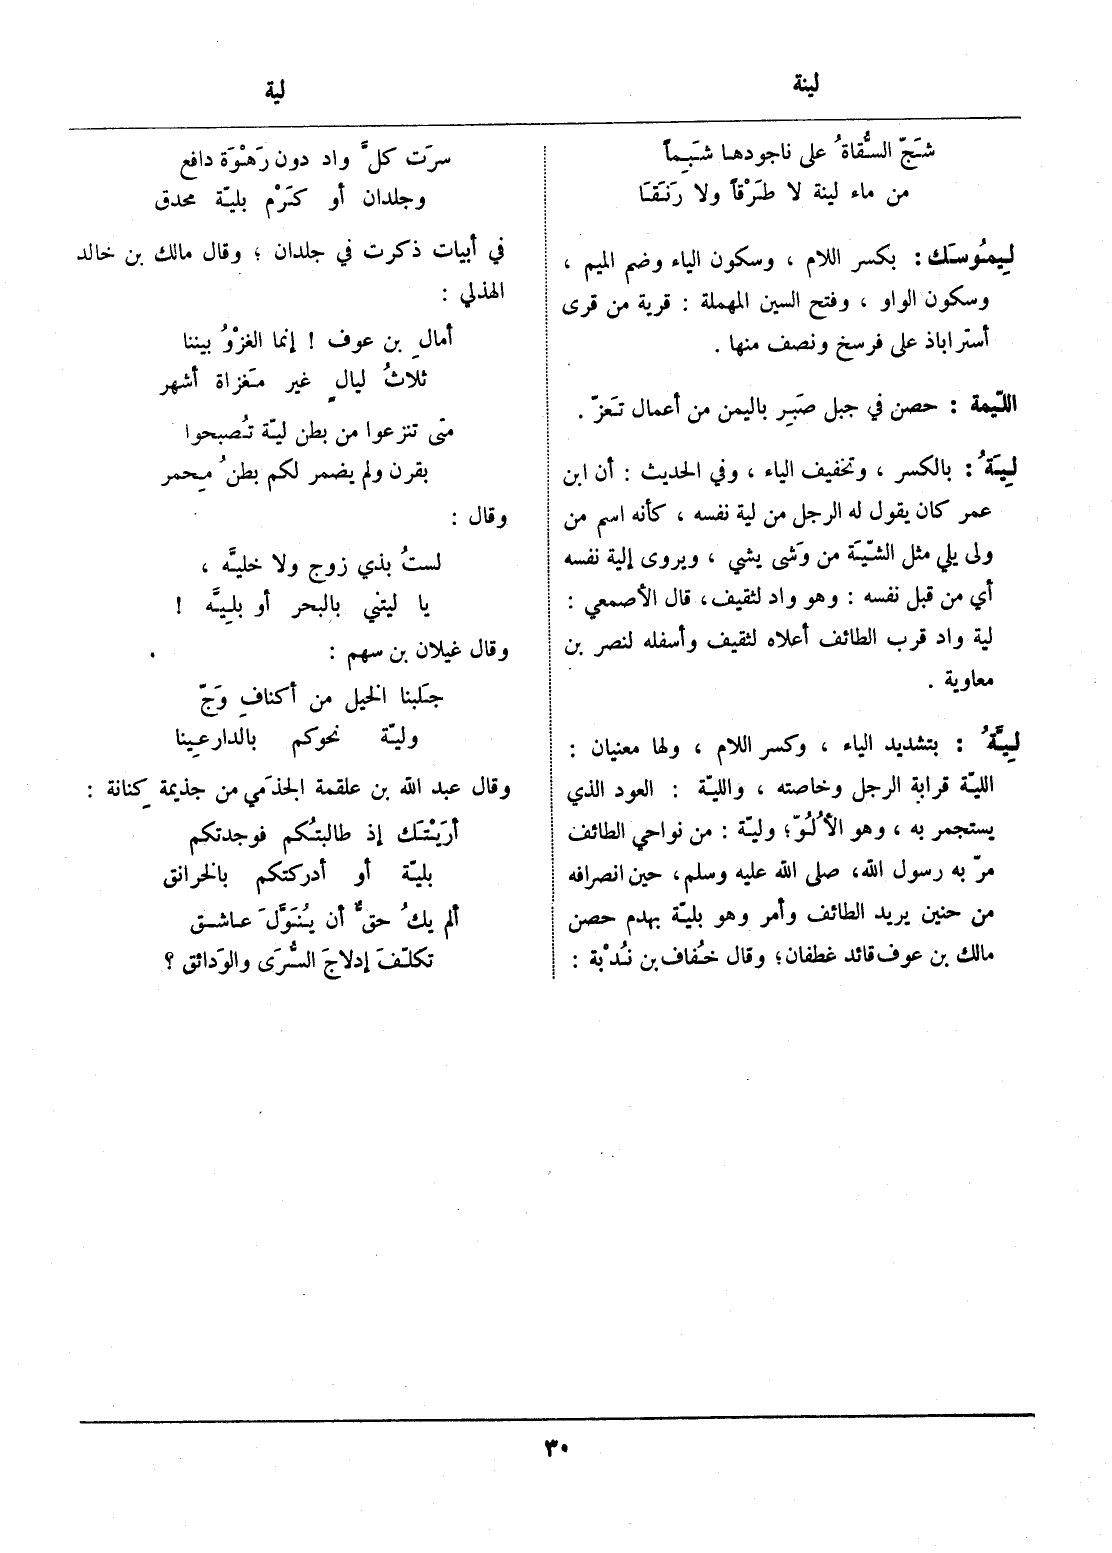 لينة
لية
شَجّ السُّقاةُ على ناجودها شَبِماً
من ماء لينة لا طَرْقاً ولا رَنَقَا
لِيمُوسَك : بكسر اللام ، وسكون الياء وضم الميم ،
وسكون الواو ، وفتح السين المهملة : قرية من قرى
أستراباذ على فرسخ ونصف منها .
اللّيمة : حصن في جبل صَبِر باليمن من أعمال تَعَزّ .
لِيَةُ : بالكسر ، وتخفيف الياء ، وفي الحديث : أن ابن
عمر كان يقول له الرجل من لية نفسه ، كأنه اسم من
ولى يلي مثل الشّيَة من وَشى يشي ، ويروى إلية نفسه
أي من قبل نفسه : وهو واد لثقيف ، قال الأصمعي :
لية واد قرب الطائف أعلاه لثقيف وأسفله لنصر بن
معاوية .
لِيَّةُ : بتشديد الياء ، وكسر اللام ، ولها معنيان :
الليّة قرابة الرجل وخاصته ، والليّة : العود الذي
يستجمر به ، وهو الأُلُوّ ؛ وليّة : من نواحي الطائف
مرّ به رسول الله ، صلى الله عليه وسلم ، حين انصرافه
من حنين يريد الطائف وأمر وهو بليّة بهدم حصن
مالك بن عوف قائد غطفان ؛ وقال خُفاف بن نُدْبة :
سرَت كلَّ واد دون رَهْوَة دافع
وجلدان أو كَرْم بليّة محدق
في أبيات ذكرت في جلدان ؛ وقال مالك بن خالد
الهذلي :
أمالِ بن عوف ! إنما الغزْوُ بيننا
ثلاثُ ليالٍ غير مَغزاة أشهر
متى تنزعوا من بطن ليّة تُصبحوا
بقرن ولم يضمر لكم بطنُ مِحمر
وقال :
لستُ بذي زوج ولا خليَّه ،
يا ليتني بالبحر أو بلِيَّه !
وقال غيلان بن سهم :
جَلبنا الخيل من أكنافِ وَجّ
وليّة نحوكم بالدارعِينا
وقال عبد الله بن علقمة الجذَمي من جذيمة كِنانة :
أرَيْتَك إذ طالبتُكم فوجدتكم
بليّة أو أدركتكم بالخرانق
ألم يكُ حقٌّ أن يُنَوَّلَ عاشق
تكلّفَ إدلاجَ السُّرَى والوَدائق ؟
٣٠